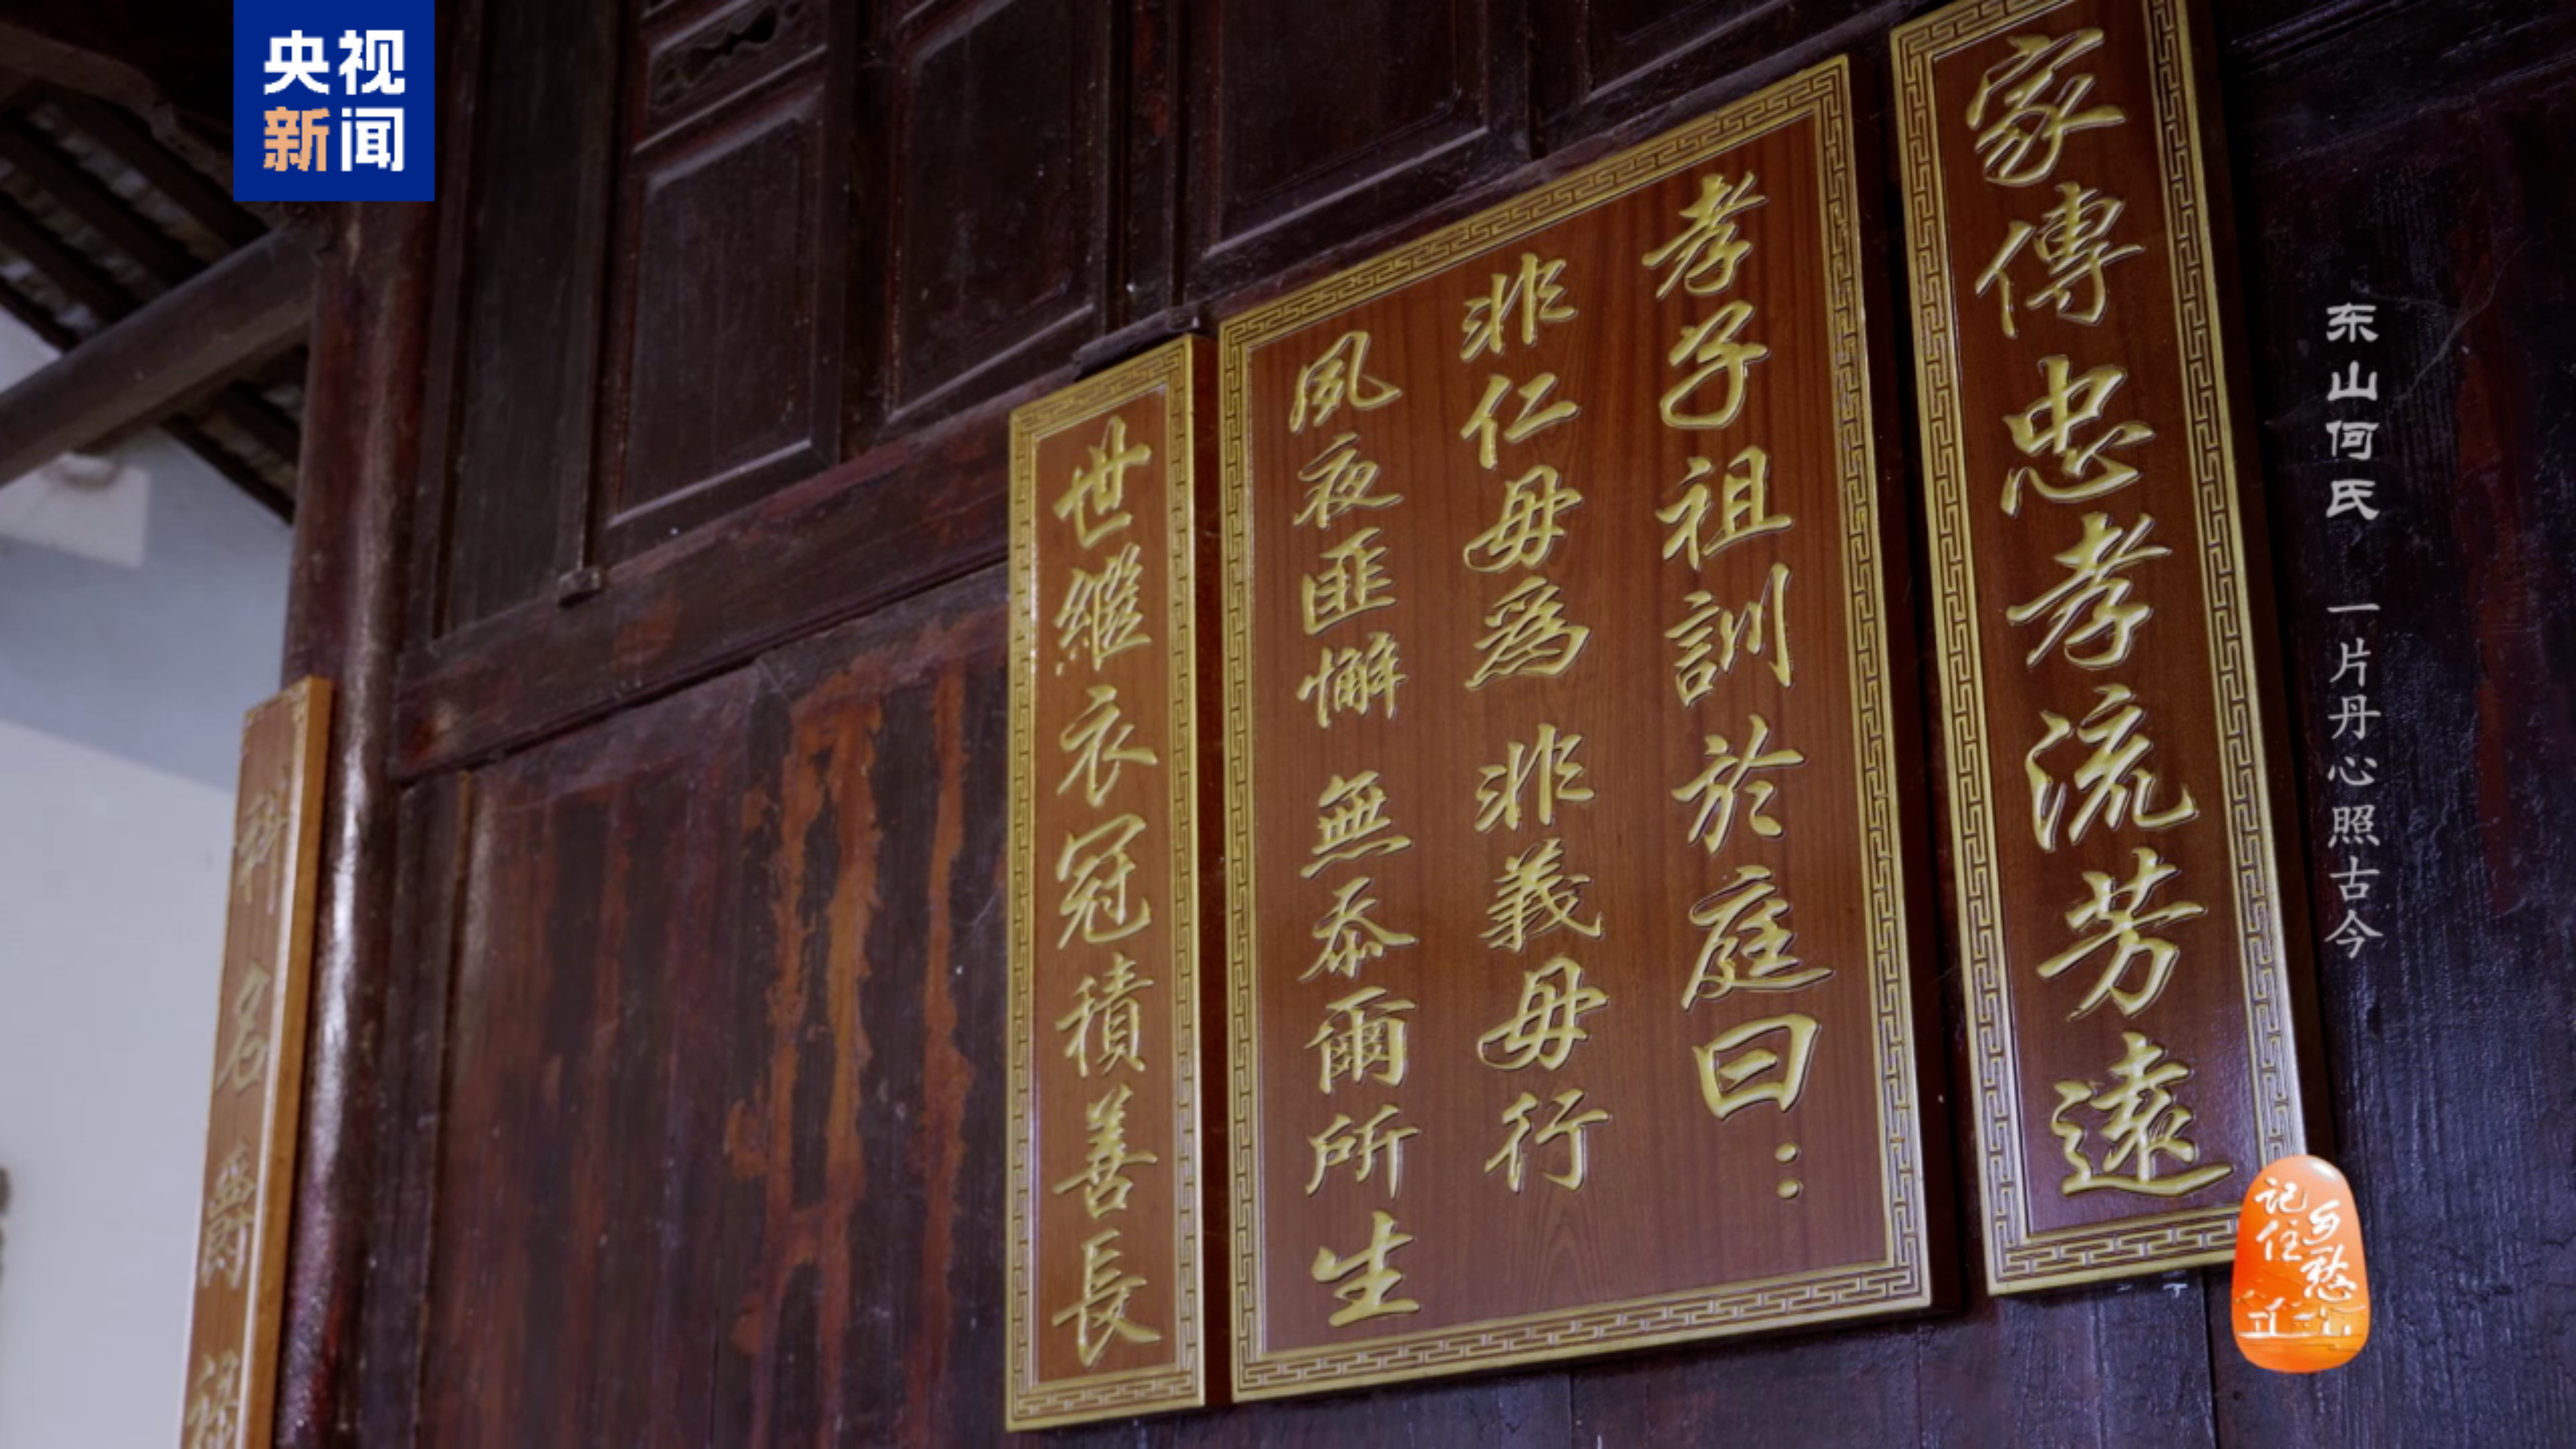 央视
新闻
家傳忠孝流芳遠
孝子祖訓於庭曰：
非仁毋為 非義毋行
夙夜匪懈 無忝爾所生
世繼衣冠積善長
科名爵祿
东山何氏 一片丹心照古今
记住
乡愁